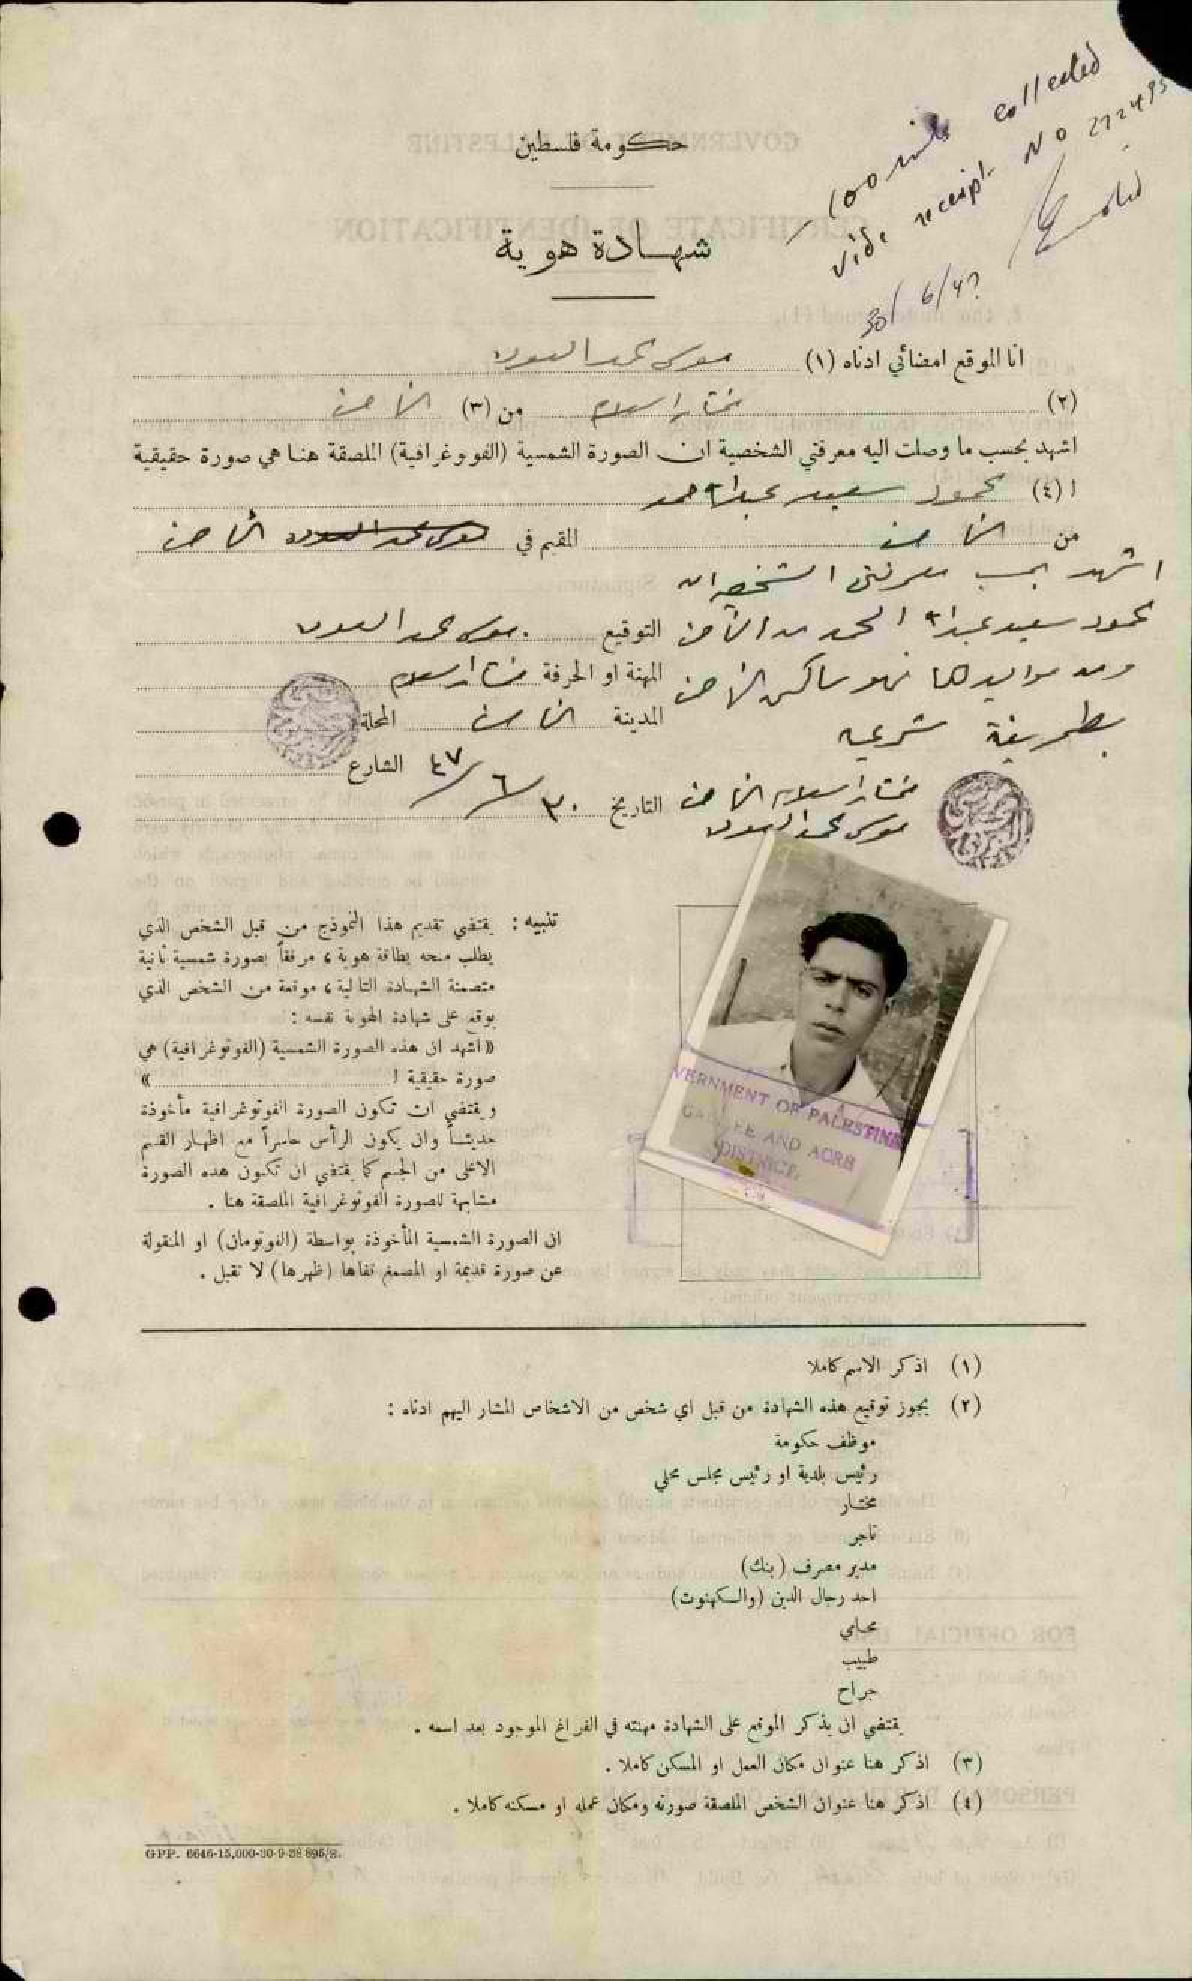 100 mils collected
vide receipt No 272495
30/6/47
حكومة فلسطين
شهادة هوية
انا الموقع امضائي ادناه (١) موسى محمد
(٢) مختار اسلام من (٣)
اشهد بحسب ما وصلت اليه معرفتي الشخصية ان الصورة الشمسية (الفوتوغرافية) الملصقة هنا هي صورة حقيقية
ا (٤) محمود سعيد عبدالله حمد
من المقيم في
اشهد بحسب معرفتي الشخصية ان
محمود سعيد عبدالله الحمد من
التوقيع موسى محمد
ومن مواليدها فهو ساكن
المهنة او الحرفة مختار اسلام
المدينة المحلة
بطريقة شرعية
الشارع
مختار اسلام
التاريخ ٣٠/٦/٤٧
موسى محمد
تنبيه : يقتضي تقديم هذا النموذج من قبل الشخص الذي
يطلب منحه بطاقة هوية ، مرفقاً بصورة شمسية ثانية
متضمنة الشهادة التالية ، موقعة من الشخص الذي
يوقع على شهادة الهوية نفسه :
« اشهد ان هذه الصورة الشمسية (الفوتوغرافية) هي
صورة حقيقية ا »
ويقتضي ان تكون الصورة الفوتوغرافية مأخوذة
حديثاً وان يكون الرأس حاسراً مع اظهار القسم
الاعلى من الجسم كما يقتضي ان تكون هذه الصورة
مشابهة للصورة الفوتوغرافية الملصقة هنا .
ان الصورة الشمسية المأخوذة بواسطة (الفوتومان) او المنقولة
عن صورة قديمة او المصمغ قفاها (ظهرها) لا تقبل .
VERNMENT OF PALESTINE
GALILEE AND ACRE
DISTRICT.
(١) اذكر الاسم كاملا
(٢) يجوز توقيع هذه الشهادة من قبل اي شخص من الاشخاص المشار اليهم ادناه :
موظف حكومة
رئيس بلدية او رئيس مجلس محلي
مختار
تاجر
مدير مصرف (بنك)
احد رجال الدين (والكهنوت)
محامي
طبيب
جراح
يقتضي ان يذكر الموقع على الشهادة مهنته في الفراغ الموجود بعد اسمه .
(٣) اذكر هنا عنوان مكان العمل او المسكن كاملا .
(٤) اذكر هنا عنوان الشخص الملصقة صورته ومكان عمله او مسكنه كاملا .
GPP. 6646-15,000-30-9-38 895/S.